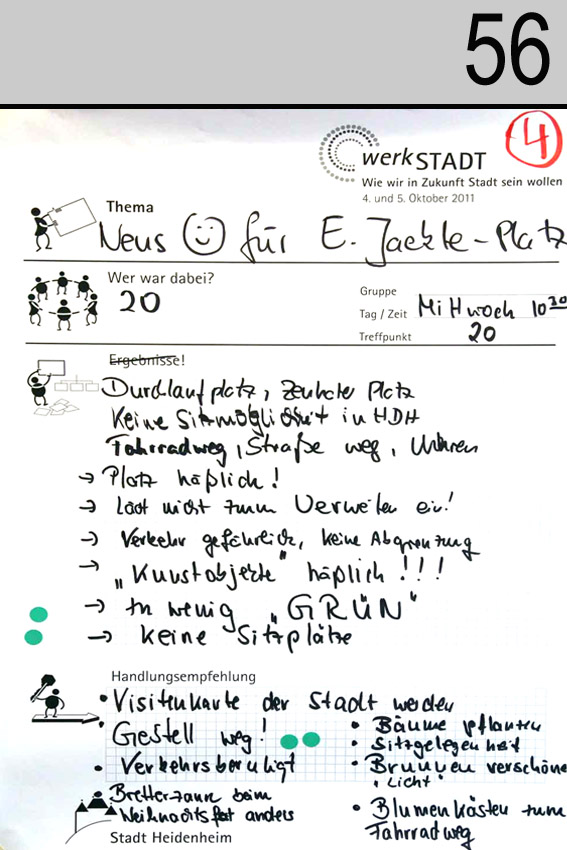 56
4
werkSTADT
Wie wir in Zukunft Stadt sein wollen
4. und 5. Oktober 2011
Thema
Neus für E. Jackle-Platz
Wer war dabei?
20
Gruppe
Tag / Zeit Mittwoch 10 30
Treffpunkt 20
Ergebnisse!
Durchlaufplatz, Zentraler Platz
Keine Sitzmöglichkeit in HDH
Fahrradweg, Straße weg,
→ Platz häßlich!
→ Lädt nicht zum Verweilen ein!
→ Verkehr gefährlich, keine Abgrenzung
→ „Kunstobjekte" häßlich!!!
→ zu wenig „GRÜN"
→ keine Sitzplätze
Handlungsempfehlung
• Visitenkarte der Stadt werden
• Gestell weg!
• Verkehrsberuhigt
• Bretterzaun beim
Weihnachts anders
• Bäume pflanzen
• Sitzgelegenheit
• Brunnen verschöne
"Licht"
• Blumenkästen zum
Fahrradweg
Stadt Heidenheim